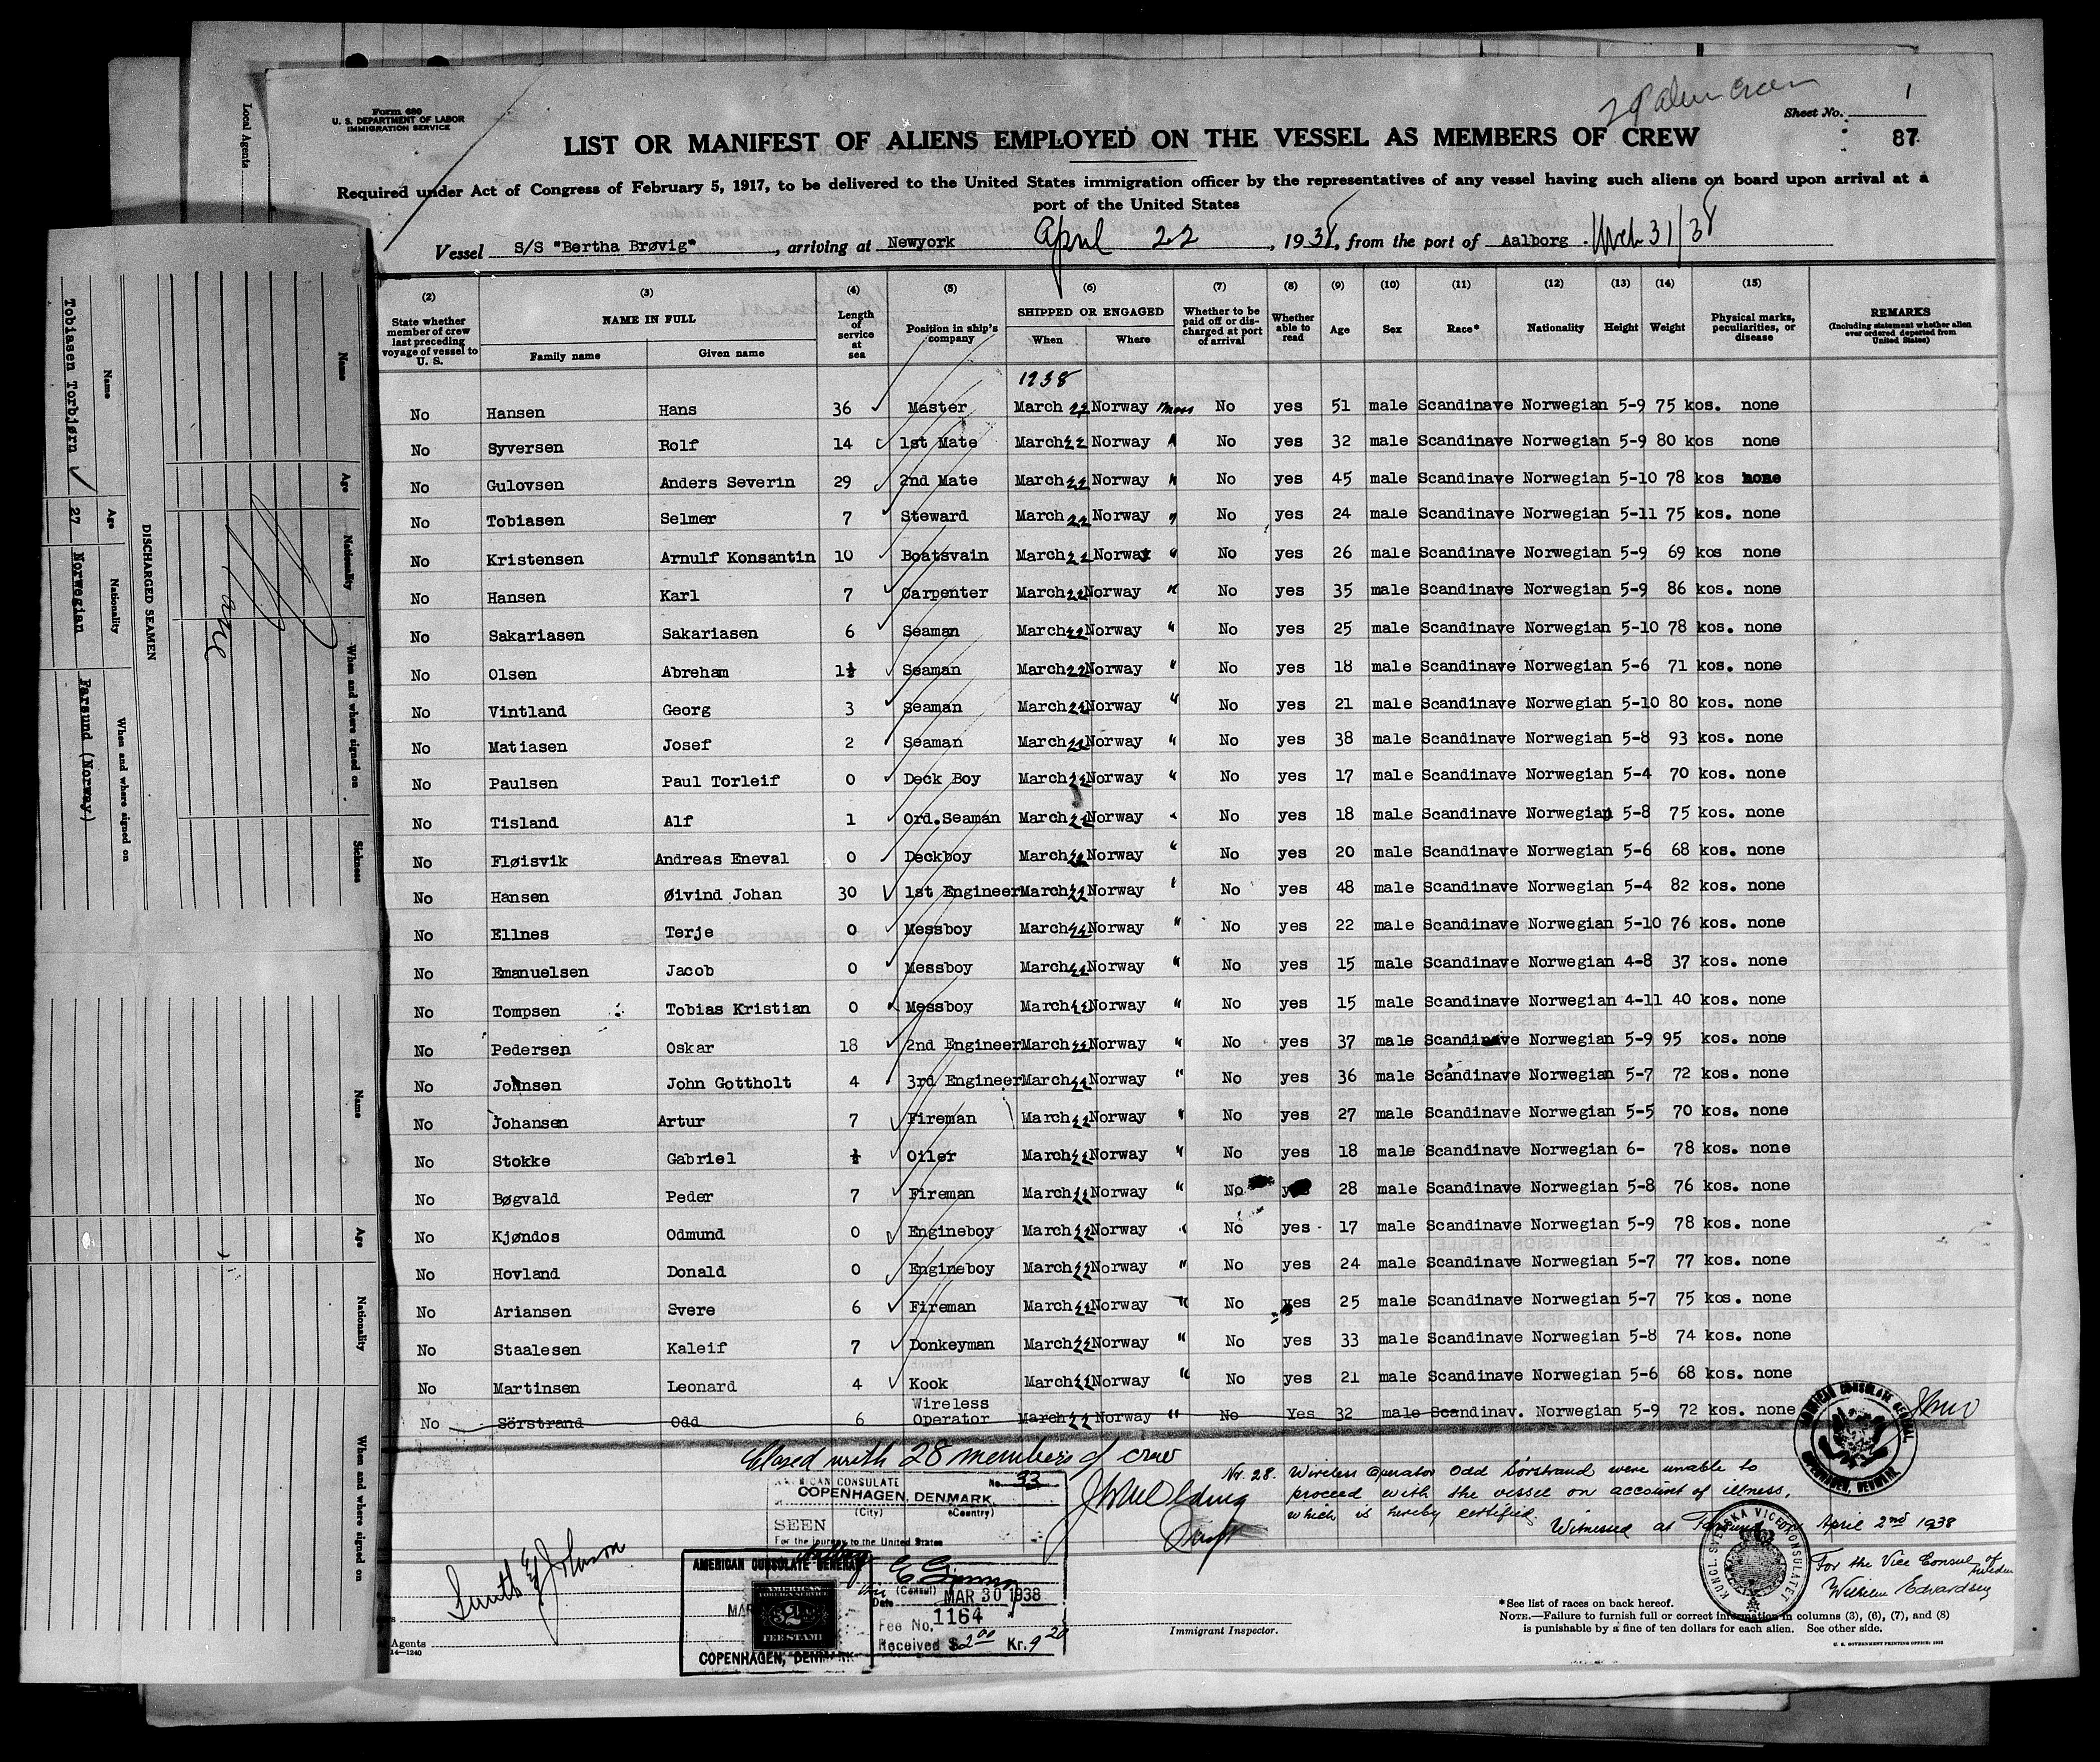 Form 680
U. S. DEPARTMENT OF LABOR
IMMIGRATION SERVICE
Sheet No. 1
87
LIST OR MANIFEST OF ALIENS EMPLOYED ON THE VESSEL AS MEMBERS OF CREW
Required under Act of Congress of February 5, 1917, to be delivered to the United States immigration officer by the representatives of any vessel having such aliens on board upon arrival at a
port of the United States
Vessel S/S "Bertha Brøvig", arriving at Newyork April 22, 1938, from the port of Aalborg. Mch 31/38
(2) (3) (4) (5) (6) (7) (8) (9) (10) (11) (12) (13) (14) (15)
State whether member of crew last preceding voyage of vessel to U. S. | NAME IN FULL | Family name | Given name | Length of service at sea | Position in ship's company | SHIPPED OR ENGAGED | When | Where | Whether to be paid off or discharged at port of arrival | Whether able to read | Age | Sex | Race* | Nationality | Height | Weight | Physical marks, peculiarities, or disease | REMARKS (Including statement whether alien ever ordered deported from United States)
1938
No Hansen Hans 36 Master March 22 Norway Moss No yes 51 male Scandinave Norwegian 5-9 75 kos. none
No Syversen Rolf 14 1st Mate March 22 Norway " No yes 32 male Scandinave Norwegian 5-9 80 kos none
No Gulovsen Anders Severin 29 2nd Mate March 22 Norway " No yes 45 male Scandinave Norwegian 5-10 78 kos none
No Tobiasen Selmer 7 Steward March 22 Norway " No yes 24 male Scandinave Norwegian 5-11 75 kos. none
No Kristensen Arnulf Konsantin 10 Boatsvain March 22 Norway " No yes 26 male Scandinave Norwegian 5-9 69 kos none
No Hansen Karl 7 Carpenter March 22 Norway " No yes 35 male Scandinave Norwegian 5-9 86 kos. none
No Sakariasen Sakariasen 6 Seaman March 22 Norway " No yes 25 male Scandinave Norwegian 5-10 78 kos. none
No Olsen Abreham 1½ Seaman March 22 Norway " No yes 18 male Scandinave Norwegian 5-6 71 kos. none
No Vintland Georg 3 Seaman March 22 Norway " No yes 21 male Scandinave Norwegian 5-10 80 kos. none
No Matiasen Josef 2 Seaman March 22 Norway " No yes 38 male Scandinave Norwegian 5-8 93 kos. none
No Paulsen Paul Torleif 0 Deck Boy March 22 Norway " No yes 17 male Scandinave Norwegian 5-4 70 kos. none
No Tisland Alf 1 Ord.Seaman March 22 Norway " No yes 18 male Scandinave Norwegian 5-8 75 kos. none
No Fløisvik Andreas Eneval 0 Deckboy March 22 Norway " No yes 20 male Scandinave Norwegian 5-6 68 kos. none
No Hansen Øivind Johan 30 1st Engineer March 22 Norway " No yes 48 male Scandinave Norwegian 5-4 82 kos. none
No Ellnes Terje 0 Messboy March 22 Norway " No yes 22 male Scandinave Norwegian 5-10 76 kos. none
No Emanuelsen Jacob 0 Messboy March 22 Norway " No yes 15 male Scandinave Norwegian 4-8 37 kos. none
No Tompsen Tobias Kristian 0 Messboy March 22 Norway " No yes 15 male Scandinave Norwegian 4-11 40 kos. none
No Pedersen Oskar 18 2nd Engineer March 22 Norway " No yes 37 male Scandinave Norwegian 5-9 95 kos. none
No Johnsen John Gottholt 4 3rd Engineer March 22 Norway " No yes 36 male Scandinave Norwegian 5-7 72 kos. none
No Johansen Artur 7 Fireman March 22 Norway " No yes 27 male Scandinave Norwegian 5-5 70 kos. none
No Stokke Gabriel ½ Oiler March 22 Norway " No yes 18 male Scandinave Norwegian 6- 78 kos. none
No Bøgvald Peder 7 Fireman March 22 Norway " No yes 28 male Scandinave Norwegian 5-8 76 kos. none
No Kjøndos Odmund 0 Engineboy March 22 Norway " No yes 17 male Scandinave Norwegian 5-9 78 kos. none
No Hovland Donald 0 Engineboy March 22 Norway " No yes 24 male Scandinave Norwegian 5-7 77 kos. none
No Ariansen Svere 6 Fireman March 22 Norway " No yes 25 male Scandinave Norwegian 5-7 75 kos. none
No Staalesen Kaleif 7 Donkeyman March 22 Norway " No yes 33 male Scandinave Norwegian 5-8 74 kos. none
No Martinsen Leonard 4 Kook March 22 Norway " No yes 21 male Scandinave Norwegian 5-6 68 kos. none
No Sörstrand Odd 6 Wireless Operator March 22 Norway " No Yes 32 male Scandinav. Norwegian 5-9 72 kos. none
Closed with 28 members of crew
Nr. 28. Wireless Operator Odd Sörstrand were unable to
proceed with the vessel on account of illness,
which is hereby certified.
Witnessed at Farsund April 2nd 1938
For the Vice Consul of Sweden
Wilhelm Edvardsen
AMERICAN CONSULATE GENERAL
COPENHAGEN, DENMARK.
KUNGL. SVENSKA VICEKONSULATET
AMERICAN CONSULATE No. 33
COPENHAGEN, DENMARK
(City) (Country)
SEEN
For the journey to the United States
(Consul)
Date MAR 30 1938
Fee No. 1164
Received $2.00 Kr. 9 20
AMERICAN CONSULATE GENERAL
AMERICAN FOREIGN SERVICE
$2
FEE STAMP
COPENHAGEN, DENMARK
Smith & Johnson
Agents
14—1240
Immigrant Inspector.
*See list of races on back hereof.
NOTE.—Failure to furnish full or correct information in columns (3), (6), (7), and (8)
is punishable by a fine of ten dollars for each alien. See other side.
U. S. GOVERNMENT PRINTING OFFICE: 1932
Local Agents
DISCHARGED SEAMEN
Name Age Nationality When and where signed on
Tobiasen Torbjørn 27 Norwegian Farsund (Norway)
Name Age Nationality When and where signed on Sickness
Name Age Nationality When and where signed on